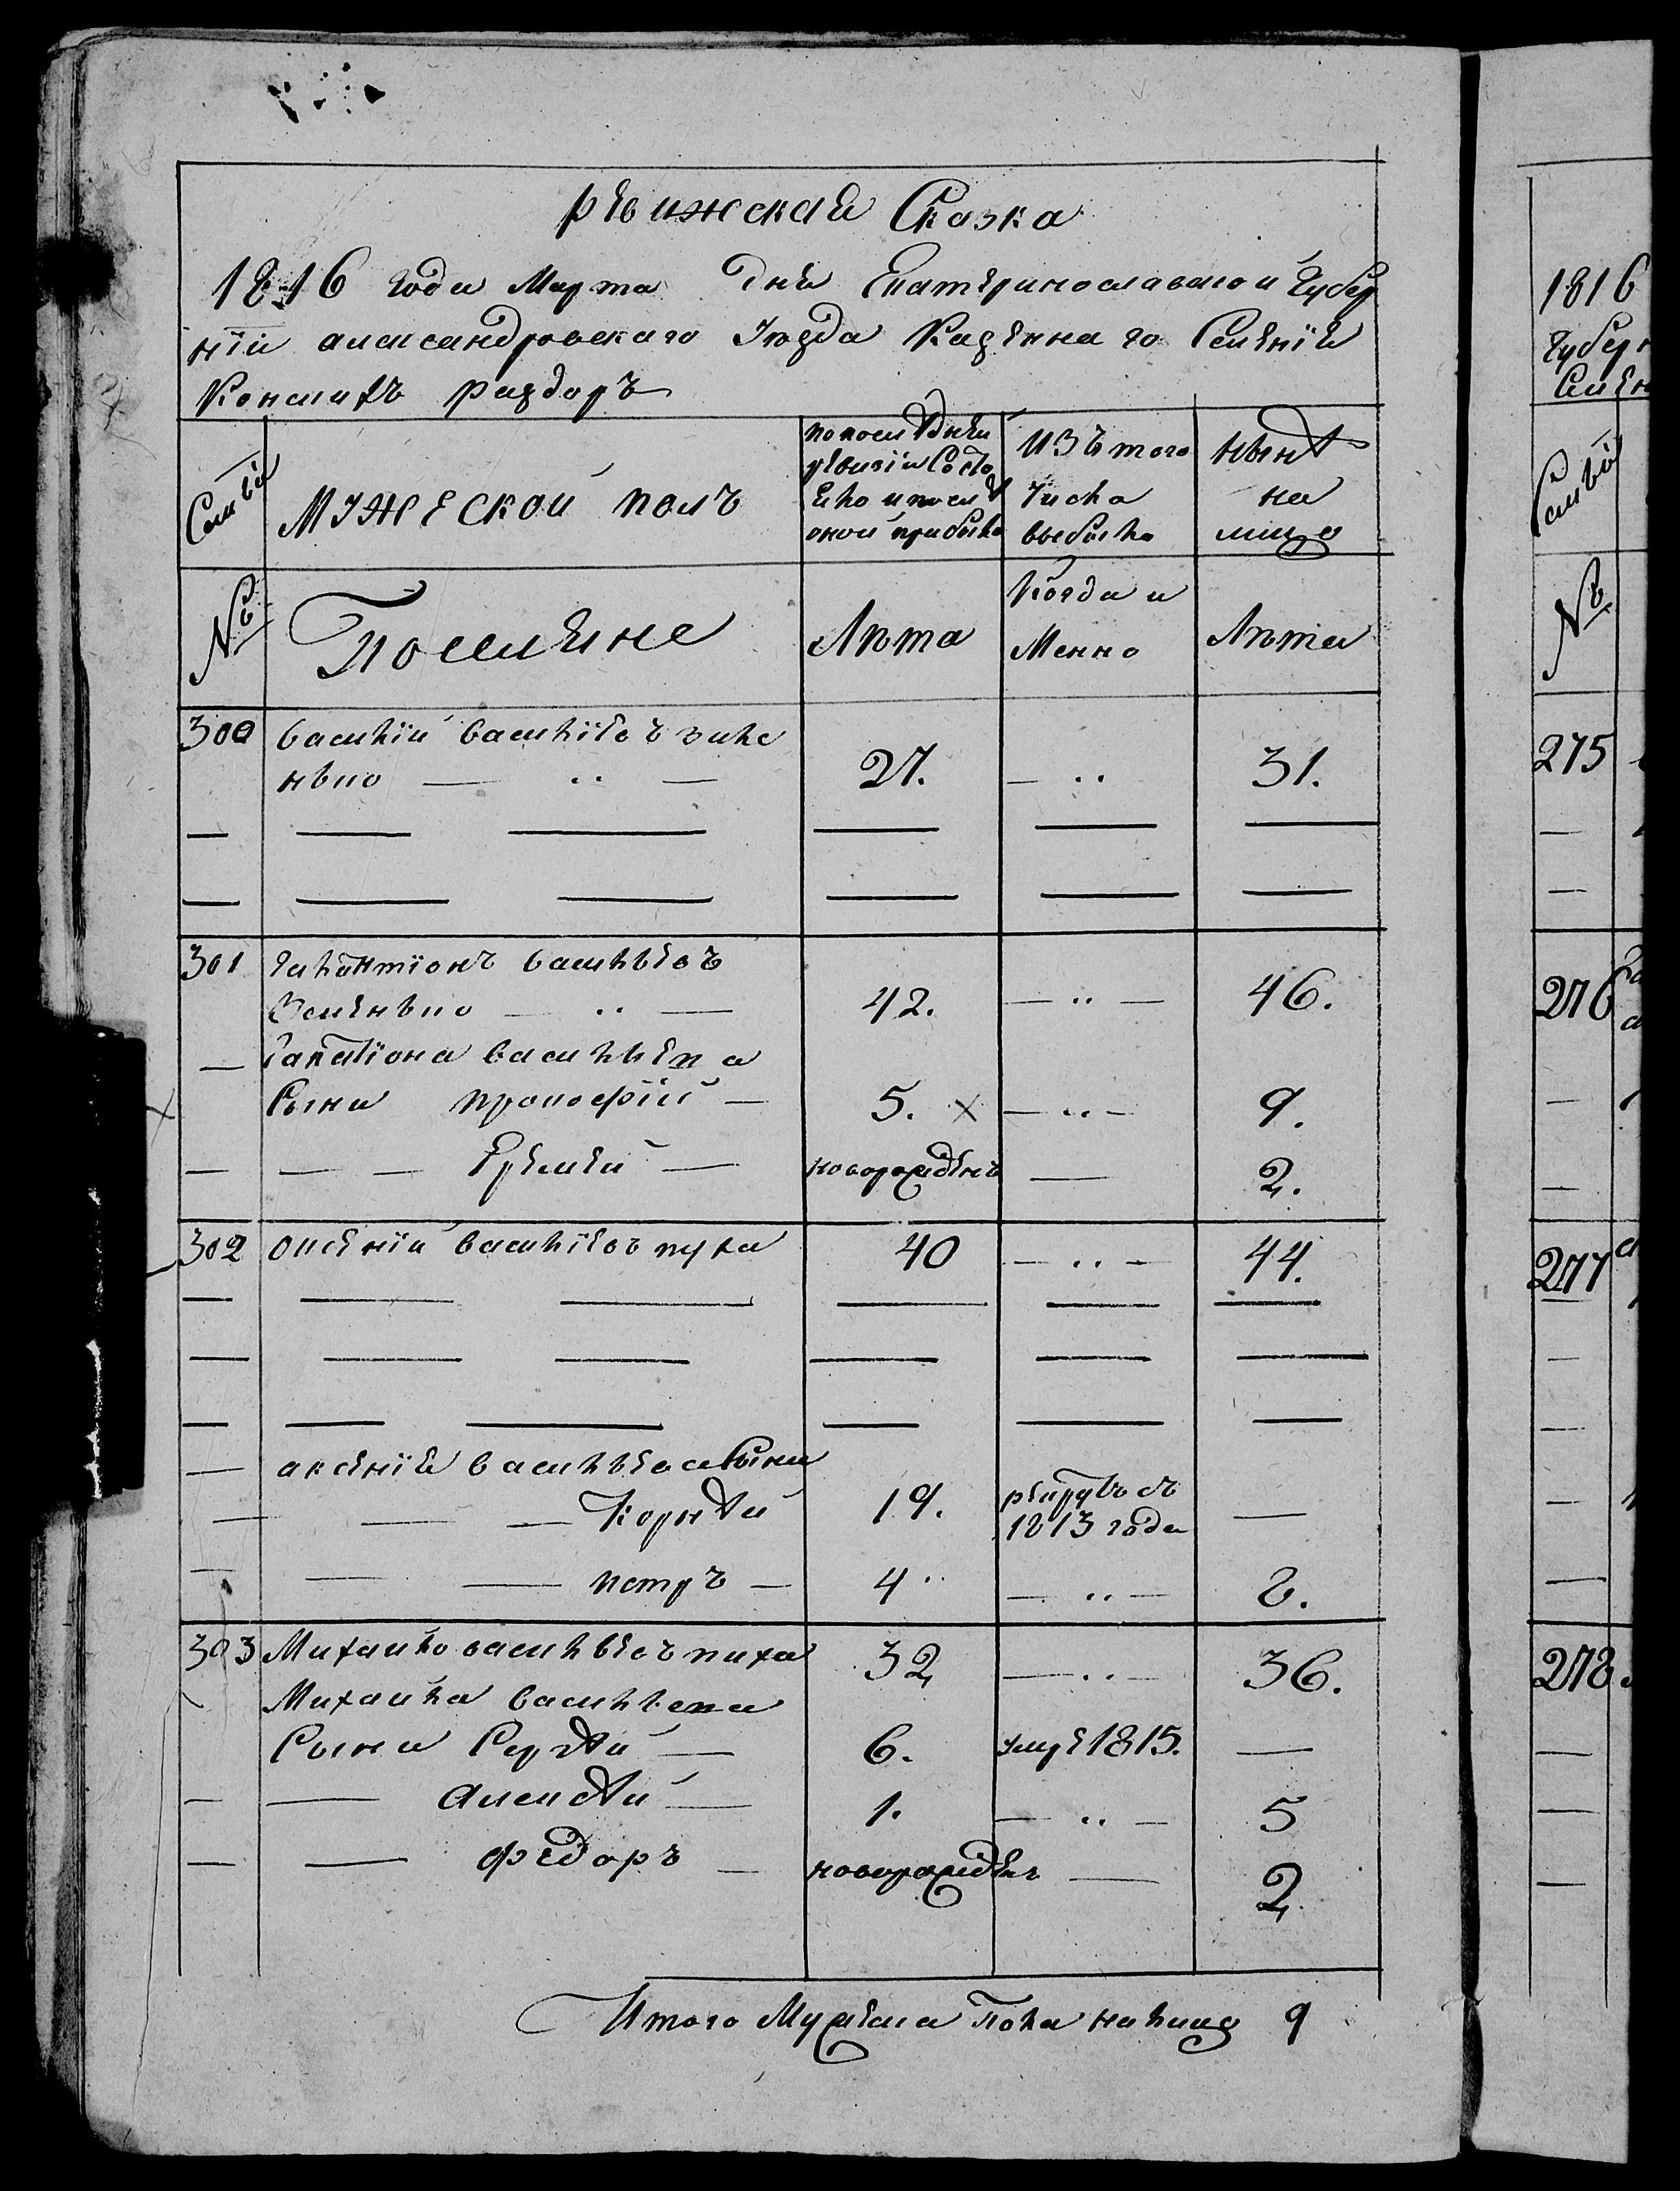 ревижская Сказка
1816 года Марта Дня Екатеринославской Губер
нїи александровского Уезда Казеннаго Селенїя
Конскихъ раздоръ
Семьи
Мужеской полъ
по последней
ревизїи Состо
ело и после
оной прибыло
изъ того
числа
выбыло
ныне
на
лицо
№
Поселяне
Лета
Когда и
Менно
Лета
300 василїй василїевъ
27. 31.
301 васильевъ
42. 46.
васильева
Сыни прокофїй 5. х 9.
Еремей новорожденъ 2.
302 аксенїй василїевъ пуха 40 44.
аксенїя васильева Сыни
Корней 19. рекрутъ съ
1813 года
петръ 4 8.
303 Михайло васильевъ пуха 32 36.
Михайла васильева
Сыни Сергей 6. умре 1815.
алексей 1. 5
федоръ новорожденъ 2
Итого Мужеска Пола налицо 9
1816
Губерн
Селен
Семьи
№
275
276
277
278